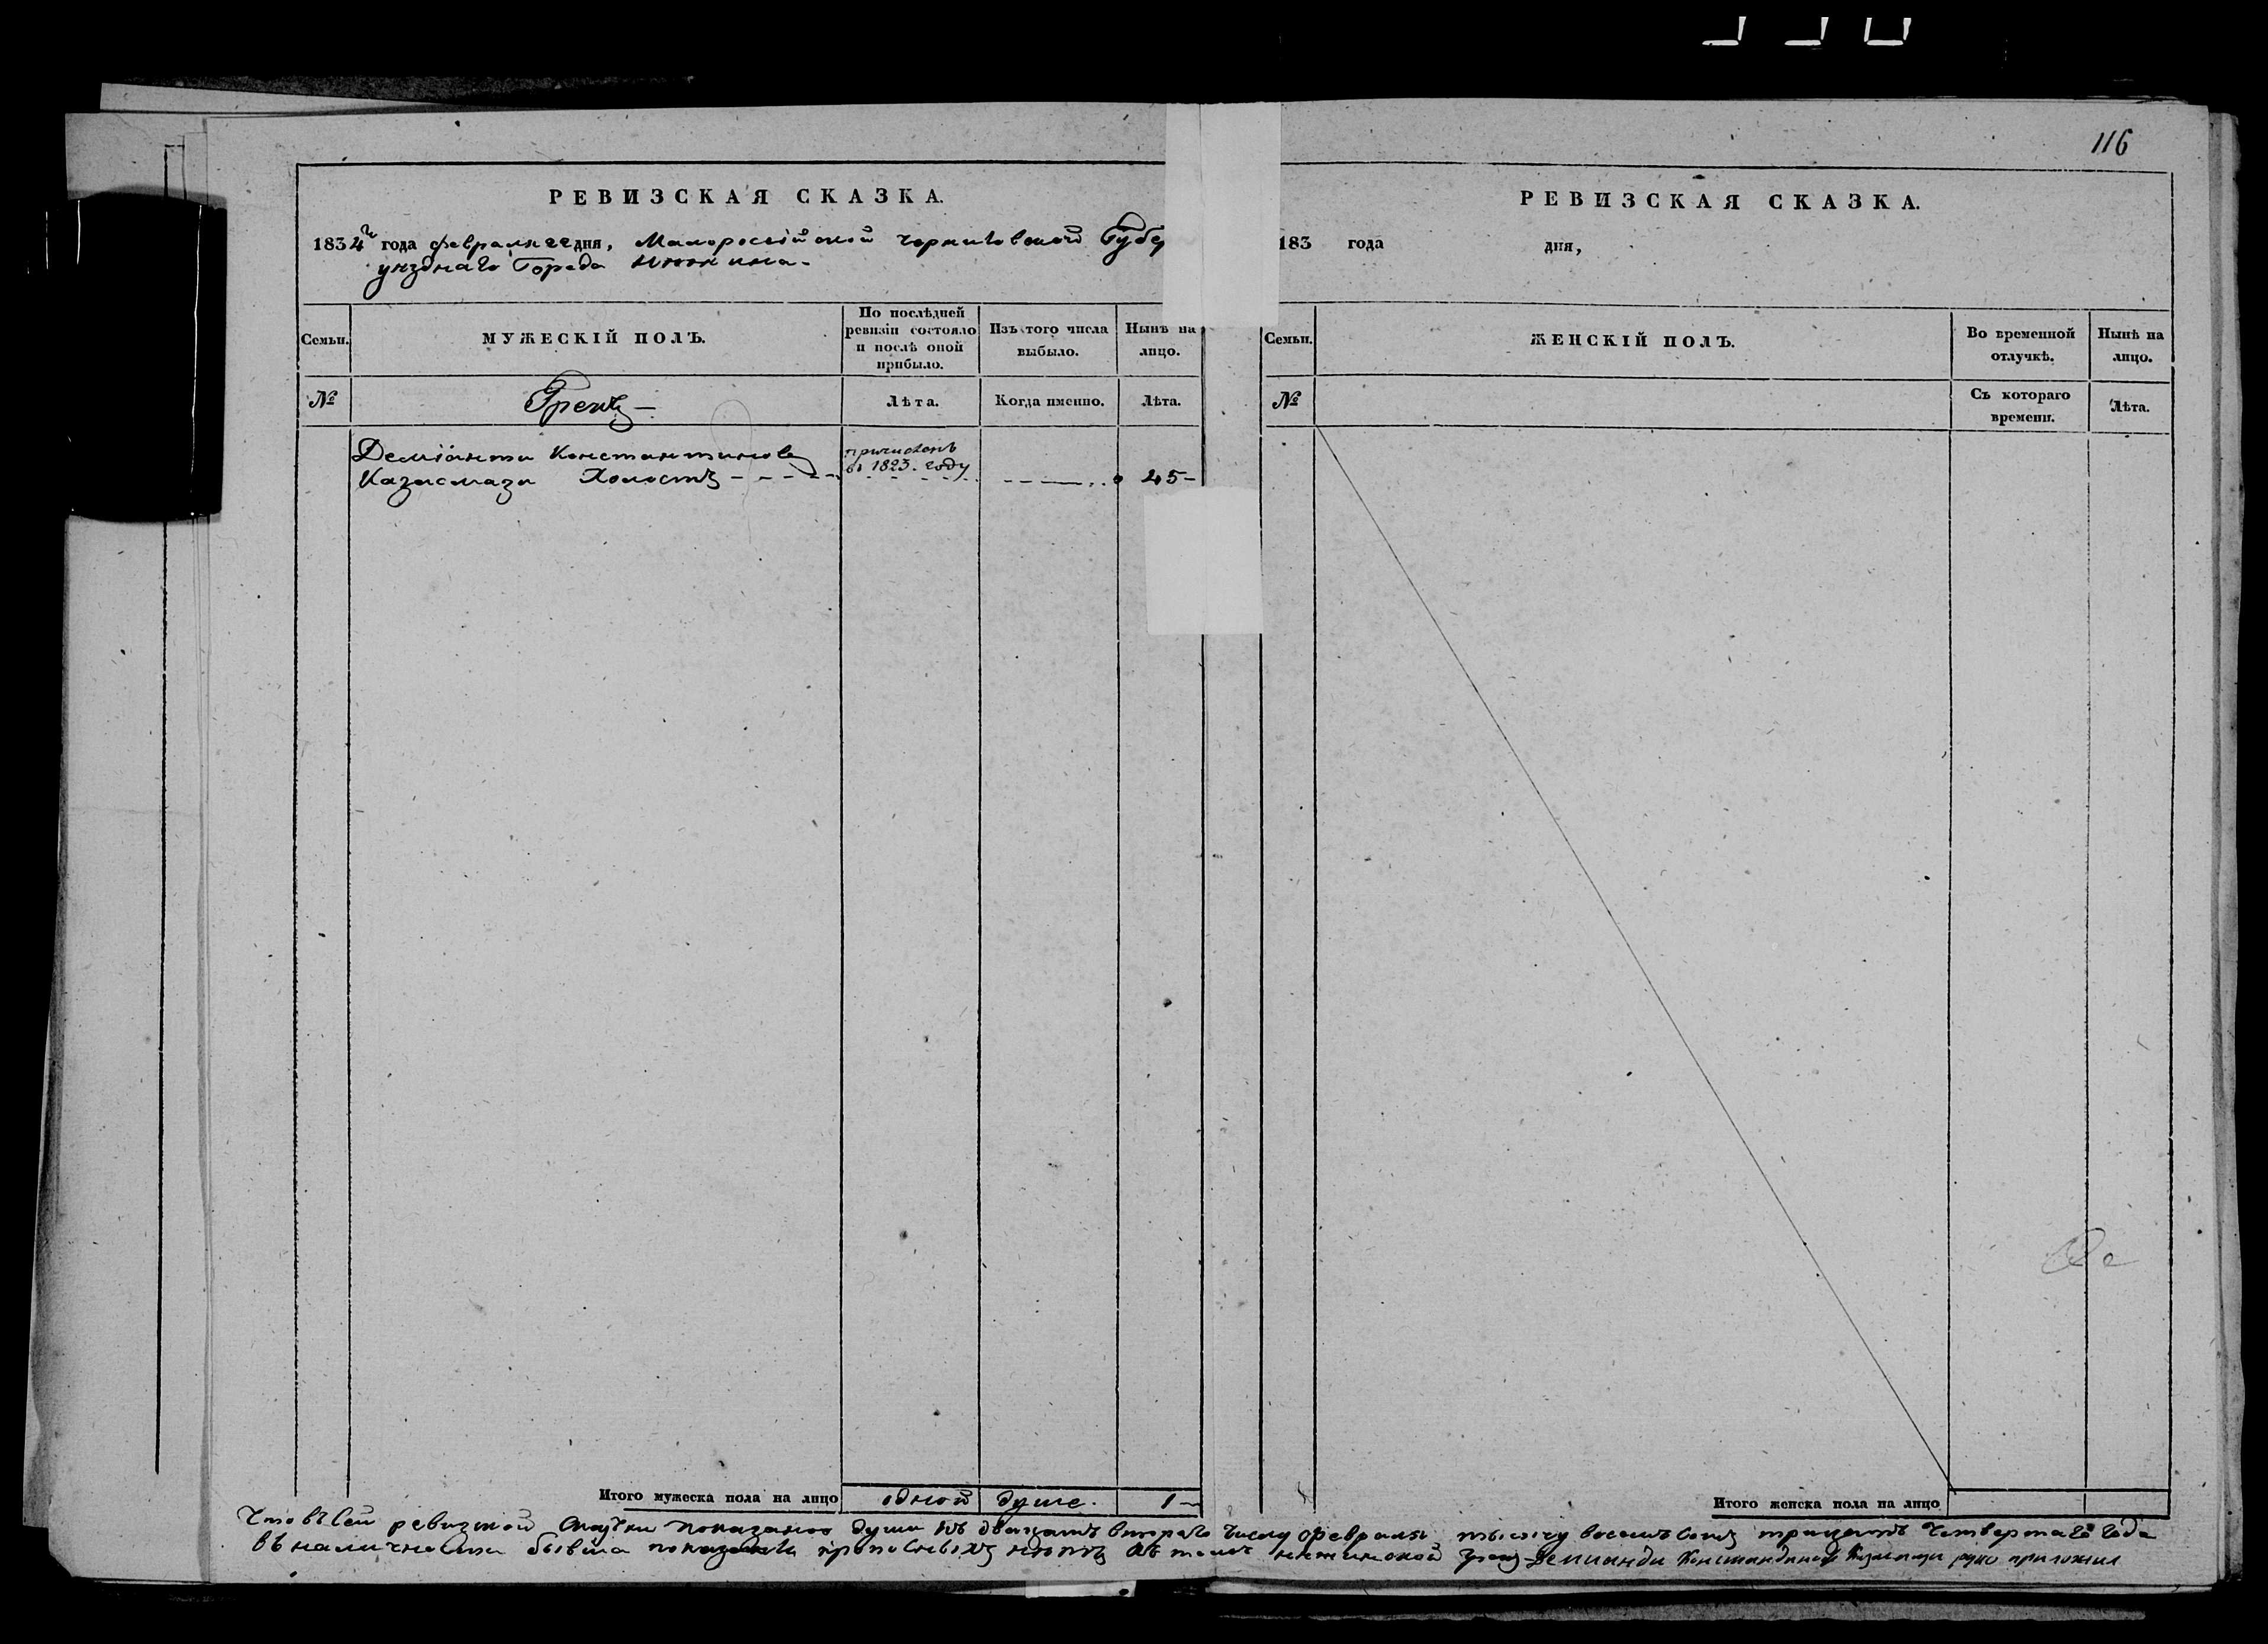 116
РЕВИЗСКАЯ СКАЗКА.
1834 года февраля 22 дня, Малоросійской черниговской Губер
уезднаго Города Нежина.
Семьи. МУЖЕСКІЙ ПОЛЪ. По послѣдней ревизіи состояло и послѣ оной прибыло. Изъ того числа выбыло. Нынѣ на лицо.
№ Грекъ Лѣта. Когда именно. Лѣта.
Деміянти Константиновъ причисленъ
Холостъ въ 1823. году 45
Итого мужеска пола на лицо одной душе. 1
РЕВИЗСКАЯ СКАЗКА.
183 года дня,
Семьи. ЖЕНСКІЙ ПОЛЪ. Во временной отлучкѣ. Нынѣ на лицо.
№ Съ котораго времени. Лѣта.
Итого женска пола на лицо
Что въ сей ревизкой показаноо души къ двацать втораго числу февраля тысячу восемъ сотъ трицать четвертаго года
въ наличности бывша прописныхъ нетъ въ томъ нежинской грекъ Демианди Константинов руко приложил